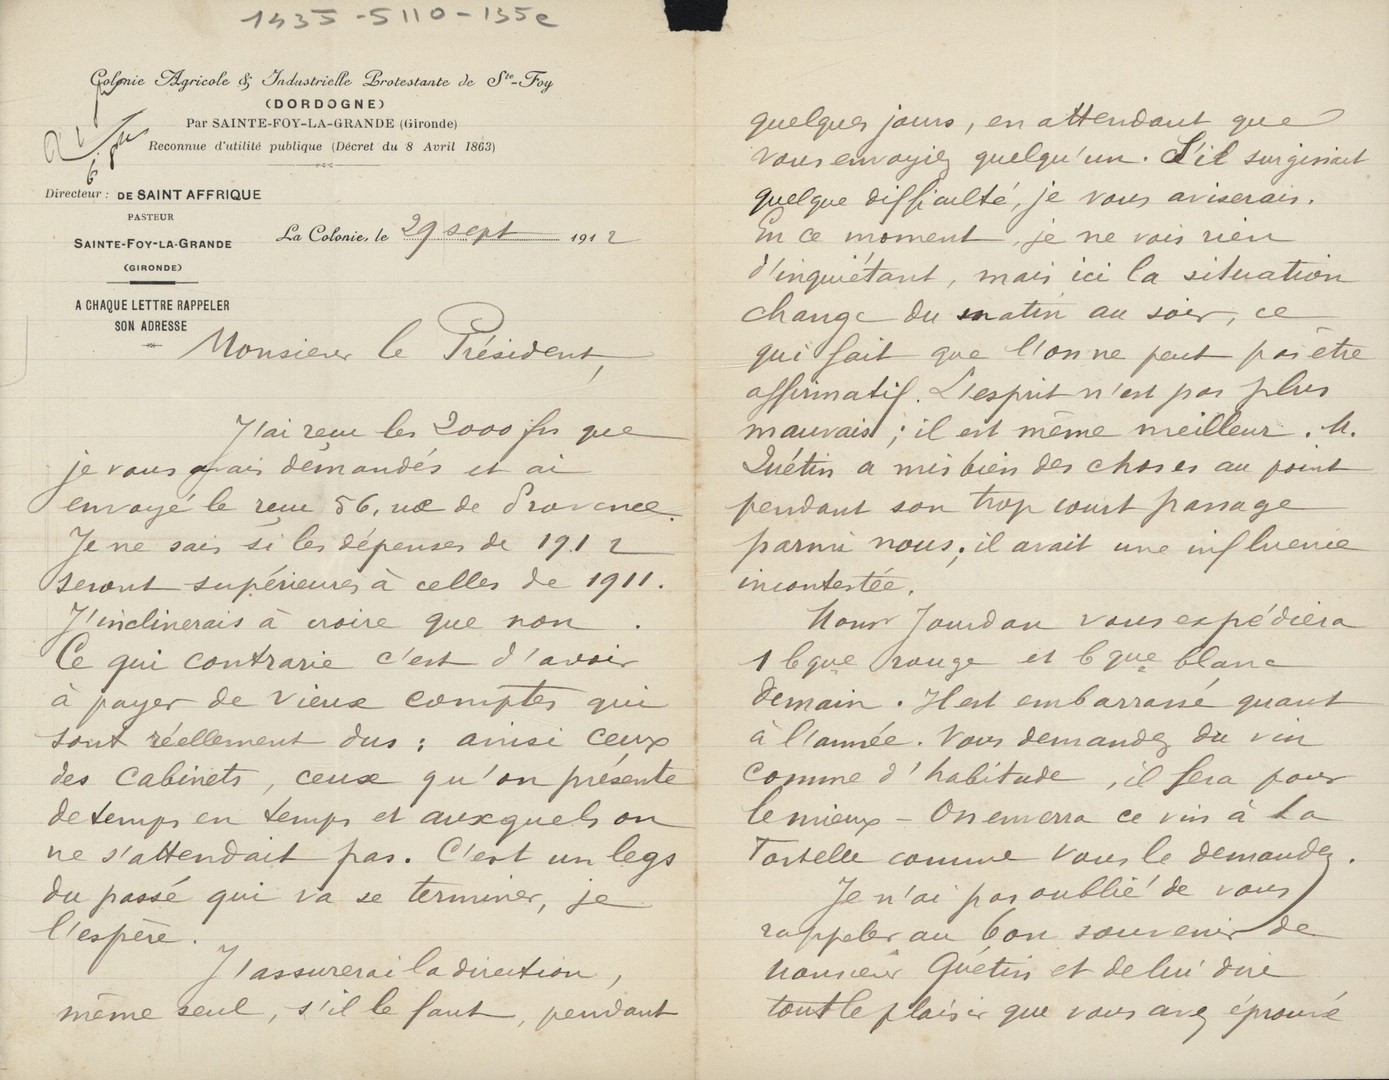 1435-5110-135e
Colonie Agricole & Industrielle Protestante de Ste-Foy
(DORDOGNE)
Par SAINTE-FOY-LA-GRANDE (Gironde)
Reconnue d'utilité publique (Décret du 8 Avril 1863)
Directeur : DE SAINT AFFRIQUE
PASTEUR
SAINTE-FOY-LA-GRANDE
(GIRONDE)
A CHAQUE LETTRE RAPPELER
SON ADRESSE
La Colonie, le 29 sept 1912
Monsieur le Président,
J'ai reçu les 2000 frs que
je vous avais demandés et ai
envoyé le reçu 56, rue de Provence.
Je ne sais si les dépenses de 1912
seront supérieures à celles de 1911.
J'inclinerais à croire que non.
Ce qui contrarie c'est d'avoir
à payer de vieux comptes qui
sont réellement dus : ainsi ceux
des Cabinets, ceux qu'on présente
de temps en temps et auxquels on
ne s'attendait pas. C'est un legs
du passé qui va se terminer, je
l'espère.
J'assurerai la direction,
même seul, s'il le faut, pendant
quelques jours, en attendant que
vous envoyiez quelqu'un. S'il surgissait
quelque difficulté, je vous aviserais.
En ce moment, je ne vois rien
d'inquiétant, mais ici la situation
change du matin au soir, ce
qui fait que l'on ne peut pas être
affirmatif. L'esprit n'est pas plus
mauvais ; il est même meilleur. M.
Quétin a mis bien des choses au point
pendant son trop court passage
parmi nous ; il avait une influence
incontestée.
Monsr Jourdan vous expédiera
1 bque rouge et bque blanc
demain. Il est embarrassé quant
à l'année. Vous demandez du vin
comme d'habitude, il fera pour
le mieux - On enverra ce vin à La
Tortelle comme vous le demandez.
Je n'ai pas oublié de vous
rappeler au bon souvenir de
Monsieur Quétin et de lui dire
tout le plaisir que vous avez éprouvé